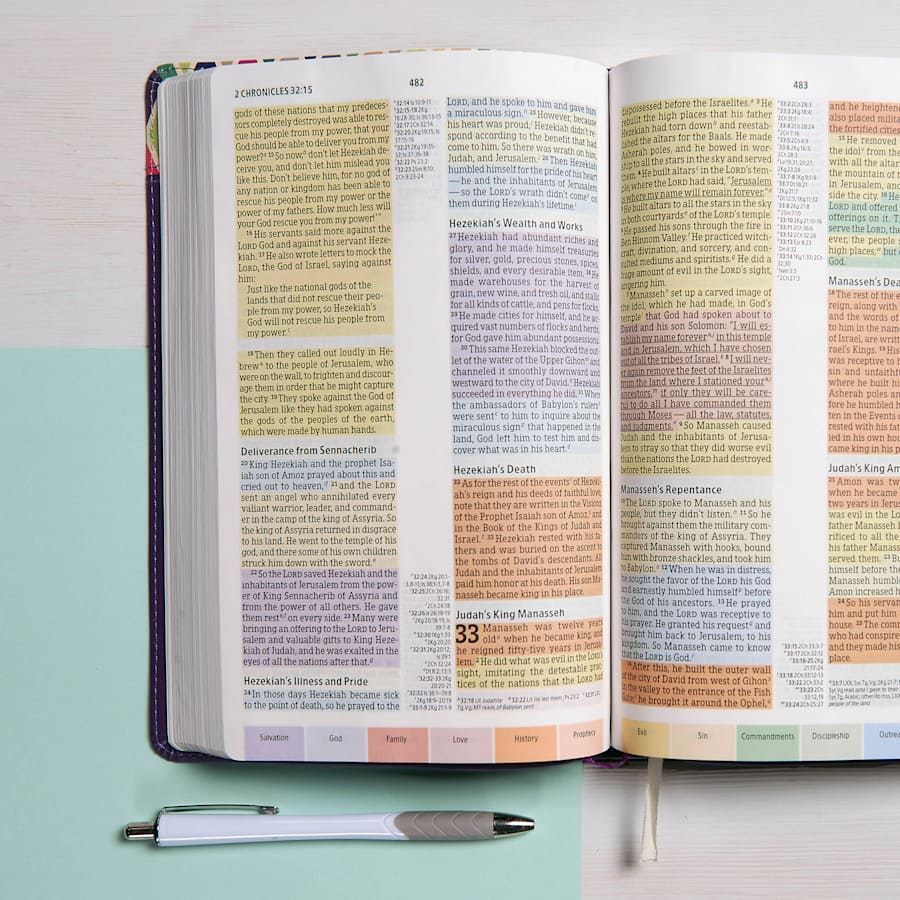 2 CHRONICLES 32:15
482
gods of these nations that my predeces-
sors completely destroyed was able to res-
cue his people from my power, that your
God should be able to deliver you from my
power? 15 So now, don't let Hezekiah de-
ceive you, and don't let him mislead you
like this. Don't believe him, for no god of
any nation or kingdom has been able to
rescue his people from my power or the
power of my fathers. How much less will
your God rescue you from my power!'"
16 His servants said more against the
LORD God and against his servant Heze-
kiah. 17 He also wrote letters to mock the
LORD, the God of Israel, saying against
him:
Just like the national gods of the
lands that did not rescue their peo-
ple from my power, so Hezekiah's
God will not rescue his people from
my power.
18 Then they called out loudly in He-
brew to the people of Jerusalem, who
were on the wall, to frighten and discour-
age them in order that he might capture
the city. 19 They spoke against the God of
Jerusalem like they had spoken against
the gods of the peoples of the earth,
which were made by human hands.
Deliverance from Sennacherib
20 King Hezekiah and the prophet Isa-
iah son of Amoz prayed about this and
cried out to heaven, 21 and the LORD
sent an angel who annihilated every
valiant warrior, leader, and command-
er in the camp of the king of Assyria. So
the king of Assyria returned in disgrace
to his land. He went to the temple of his
god, and there some of his own children
struck him down with the sword.
22 So the LORD saved Hezekiah and the
inhabitants of Jerusalem from the pow-
er of King Sennacherib of Assyria and
from the power of all others. He gave
them rest on every side. 23 Many were
bringing an offering to the LORD to Jeru-
salem and valuable gifts to King Heze-
kiah of Judah, and he was exalted in the
eyes of all the nations after that.
Hezekiah's Illness and Pride
24 In those days Hezekiah became sick
to the point of death, so he prayed to the
LORD, and he spoke to him and gave him
a miraculous sign. 25 However, because
his heart was proud, Hezekiah didn't re-
spond according to the benefit that had
come to him. So there was wrath on him,
Judah, and Jerusalem. 26 Then Hezekiah
humbled himself for the pride of his heart
— he and the inhabitants of Jerusalem
— so the LORD's wrath didn't come on
them during Hezekiah's lifetime.
Hezekiah's Wealth and Works
27 Hezekiah had abundant riches and
glory, and he made himself treasuries
for silver, gold, precious stones, spices,
shields, and every desirable item. 28 He
made warehouses for the harvest of
grain, new wine, and fresh oil, and stalls
for all kinds of cattle, and pens for flocks.
29 He made cities for himself, and he ac-
quired vast numbers of flocks and herds,
for God gave him abundant possessions.
30 This same Hezekiah blocked the out-
let of the water of the Upper Gihon and
channeled it smoothly downward and
westward to the city of David. Hezekiah
succeeded in everything he did. 31 When
the ambassadors of Babylon's rulers
were sent to him to inquire about the
miraculous sign that happened in the
land, God left him to test him and dis-
cover what was in his heart.
Hezekiah's Death
32 As for the rest of the events of Hezeki-
ah's reign and his deeds of faithful love,
note that they are written in the Visions
of the Prophet Isaiah son of Amoz, and
in the Book of the Kings of Judah and
Israel. 33 Hezekiah rested with his fa-
thers and was buried on the ascent to
the tombs of David's descendants. All
Judah and the inhabitants of Jerusalem
paid him honor at his death. His son Ma-
nasseh became king in his place.
Judah's King Manasseh
33 Manasseh was twelve years
old when he became king, and
he reigned fifty-five years in Jerusa-
lem. 2 He did what was evil in the LORD's
sight, imitating the detestable prac-
tices of the nations that the LORD had
Salvation
God
Family
Love
History
Prophecy
483
dispossessed before the Israelites. 3 He
rebuilt the high places that his father
Hezekiah had torn down and reestab-
lished the altars for the Baals. He made
Asherah poles, and he bowed in wor-
ship to all the stars in the sky and served
them. 4 He built altars in the LORD's tem-
ple, where the LORD had said, "Jerusalem
is where my name will remain forever."
5 He built altars to all the stars in the sky
in both courtyards of the LORD's temple.
6 He passed his sons through the fire in
Ben Hinnom Valley. He practiced witch-
craft, divination, and sorcery, and con-
sulted mediums and spiritists. He did a
huge amount of evil in the LORD's sight,
angering him.
7 Manasseh set up a carved image of
the idol, which he had made, in God's
temple that God had spoken about to
David and his son Solomon: "I will es-
tablish my name forever in this temple
and in Jerusalem, which I have chosen
out of all the tribes of Israel. 8 I will nev-
er again remove the feet of the Israelites
from the land where I stationed your
ancestors, if only they will be care-
ful to do all I have commanded them
through Moses — all the law, statutes,
and judgments." 9 So Manasseh caused
Judah and the inhabitants of Jerusa-
lem to stray so that they did worse evil
than the nations the LORD had destroyed
before the Israelites.
Manasseh's Repentance
10 The LORD spoke to Manasseh and his
people, but they didn't listen. 11 So he
brought against them the military com-
manders of the king of Assyria. They
captured Manasseh with hooks, bound
him with bronze shackles, and took him
to Babylon. 12 When he was in distress,
he sought the favor of the LORD his God
and earnestly humbled himself before
the God of his ancestors. 13 He prayed
to him, and the LORD was receptive to
his prayer. He granted his request and
brought him back to Jerusalem, to his
kingdom. So Manasseh came to know
that the LORD is God.
14 After this, he built the outer wall
of the city of David from west of Gihon
in the valley to the entrance of the Fish
Gate; he brought it around the Ophel,
and he heightene
also placed milita
the fortified cities
15 He removed
the idol from the
with all the altar
the mountain of
in Jerusalem, and
side the city. 16 He
LORD and offered
offerings on it. Th
serve the LORD, the
ever, the people s
high places, but o
God.
Manasseh's Dea
18 The rest of the e
reign, along with
and the words of
to him in the name
of Israel, are writ
rael's Kings. 19 His
was receptive to h
sin and unfaithf
where he built hi
Asherah poles an
fore he humbled h
ten in the Events o
rested with his fat
ied in his own hou
came king in his p
Judah's King Am
21 Amon was tw
when he became
two years in Jerus
was evil in the LO
father Manasseh
rificed to all the
his father Manass
served them. 23 Bu
himself before the
Manasseh humble
Amon increased h
24 So his servan
him and put him
house. 25 The com
who had conspire
and they made hi
place.
Evil
Sin
Commandments
Discipleship
Outrea